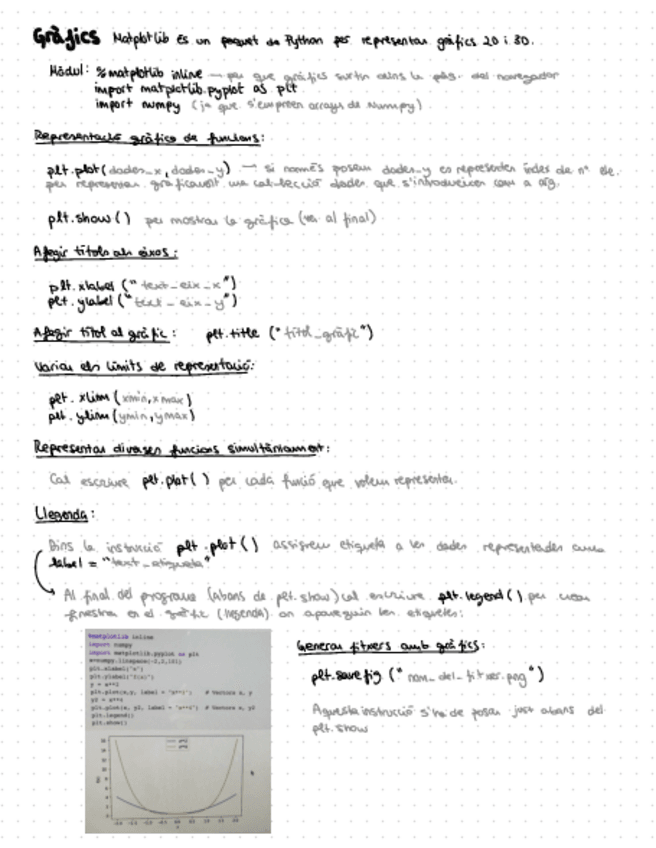 Gràfics Matplotlib és un paquet de Python per representar gràfics 2D i 3D.
Mòdul: %matplotlib inline — per que gràfics surtin dins la pàg. del navegador
import matplotlib.pyplot as plt
import numpy (ja que s'empreen arrays de Numpy)
Representació gràfica de funcions:
plt.plot(dades_x, dades_y) → si només posem dades_y es representen índex de nº ele.
per representar gràficament una col·lecció dades que s'introdueixen com a arg.
plt.show() per mostrar la gràfica (va al final)
Afegir títols als eixos:
plt.xlabel ("text_eix_x")
plt.ylabel ("text_eix_y")
Afegir títol al gràfic: plt.title ("títol_gràfic")
Variar els límits de representació:
plt.xlim (xmin, xmax)
plt.ylim (ymin, ymax)
Representar diverses funcions simultàniament:
Cal escriure plt.plot() per cada funció que volem representar.
Llegenda:
Dins la instrucció plt.plot() assignem etiqueta a les dades representades amb
label = "text_etiqueta"
Al final del programa (abans de plt.show) cal escriure plt.legend() per crear
finestra en el gràfic (llegenda) on apareguin les etiquetes:
%matplotlib inline
import numpy
import matplotlib.pyplot as plt
x=numpy.linspace(-2,2,101)
plt.xlabel("x")
plt.ylabel("f(x)")
y = x**2
plt.plot(x,y, label = "x**2") # Vectors x, y
y2 = x**4
plt.plot(x, y2, label = "x**4") # Vectors x, y2
plt.legend()
plt.show()
Generar fitxers amb gràfics:
plt.savefig ("nom_del_fitxer.png")
Aquesta instrucció s'ha de posar just abans del
plt.show